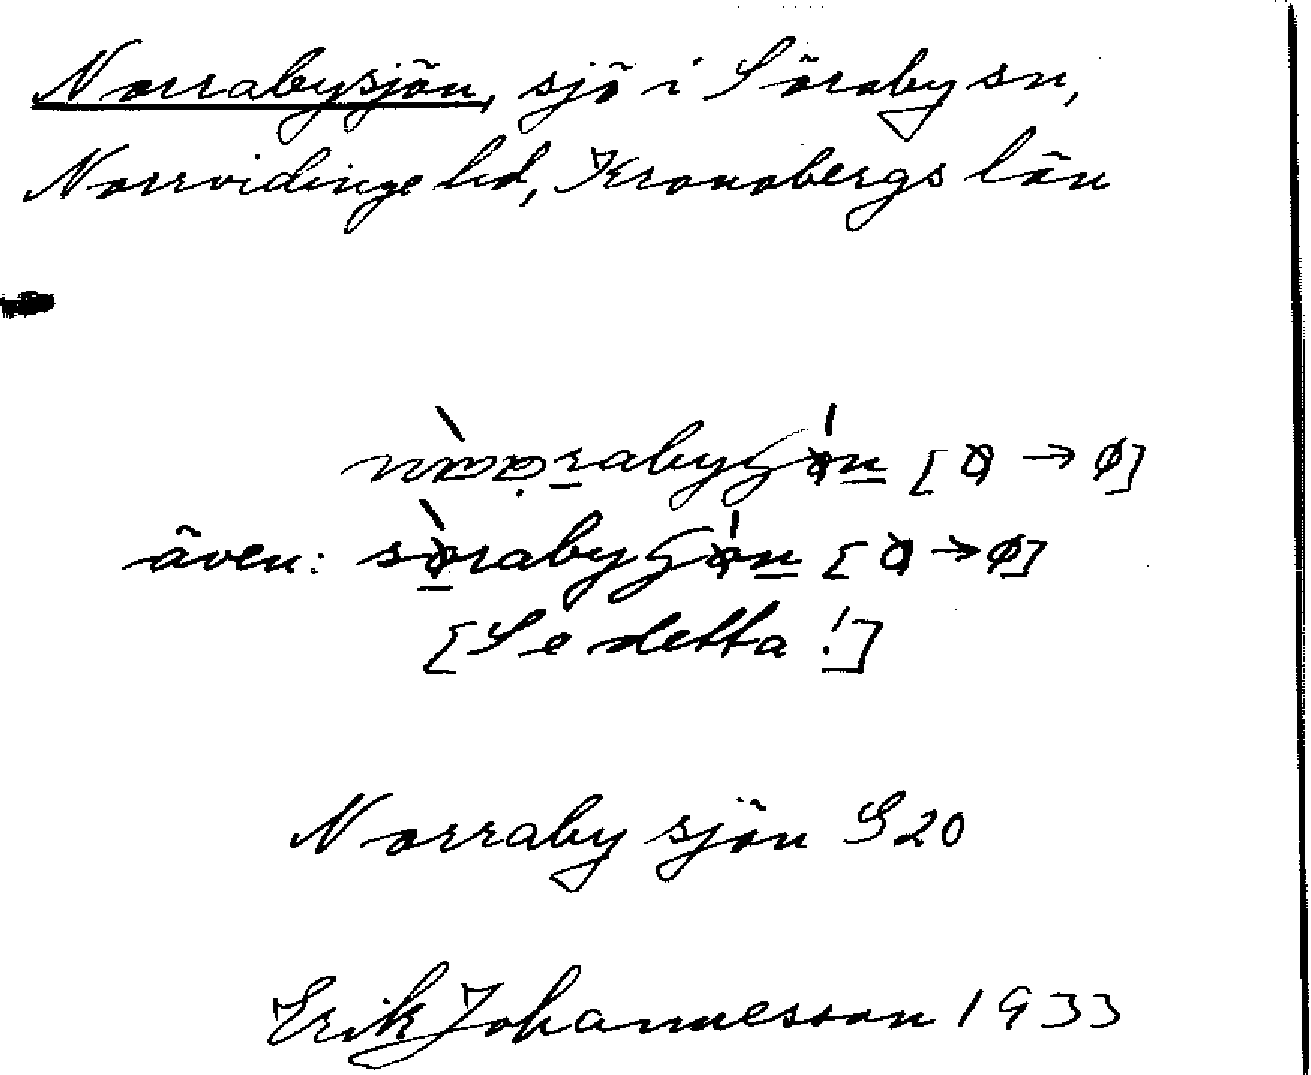 Norrabysjön, sjö i Söraby sn,
Norrvidinge hd, Kronobergs län
även:
[Se detta!]
Norraby sjön S20
Erik Johannesson 1933